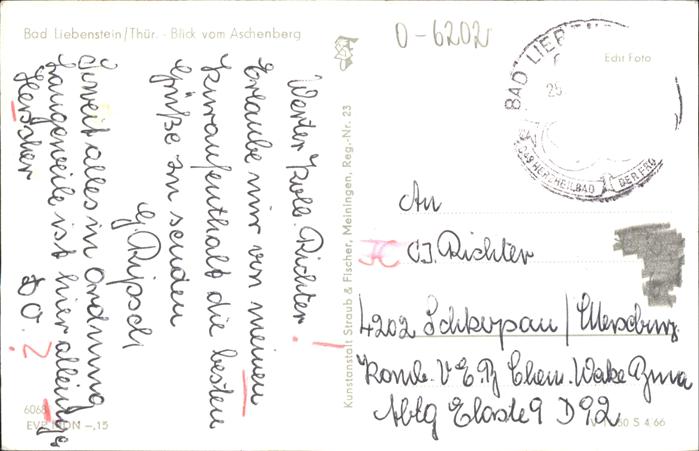 Bad Liebenstein/Thür. · Blick vom Aschenberg
O-6202
Edit Foto
BAD LIE
25
DAS HERZHEILBAD DER
Werter Koll. Richter!
Erlaube mir von meinem
Kuraufenthalt die besten
Grüße zu senden
G. Ripsch
Soweit alles in Ordnung
Langeweile ist hier alleiniger
Herscher
DO. ?
Kunstanstalt Straub & Fischer, Meiningen, Reg.-Nr. 23
An
Richter
4202 Schkopau / Merseburg
Komb. V E B Chem. Werke Buna
Abtg Elaste 9 D 92
6068
EVP MDN –,15
50 S 4 66